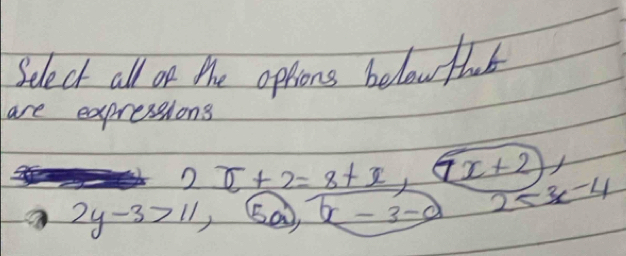 Select all of the options below that
are expressions
2x + 2 = 8 + x, 7x + 2,
2y - 3 > 11, 5a, x - 3 - a 2 < 3x - 4